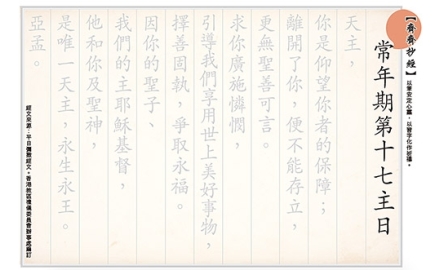 【齊齊抄經】
以筆安定心靈，以習字化作祈禱。
常年期第十七主日
天主，
你是仰望你者的保障；
離開了你，便不能存立，
更無聖善可言。
求你廣施憐憫，
引導我們享用世上美好事物，
擇善固執，爭取永福。
因你的聖子、
我們的主耶穌基督，
他和你及聖神，
是唯一天主，永生永王。
亞孟。
經文來源：平日彌撒經文。香港教區禮儀委員會辦事處編訂